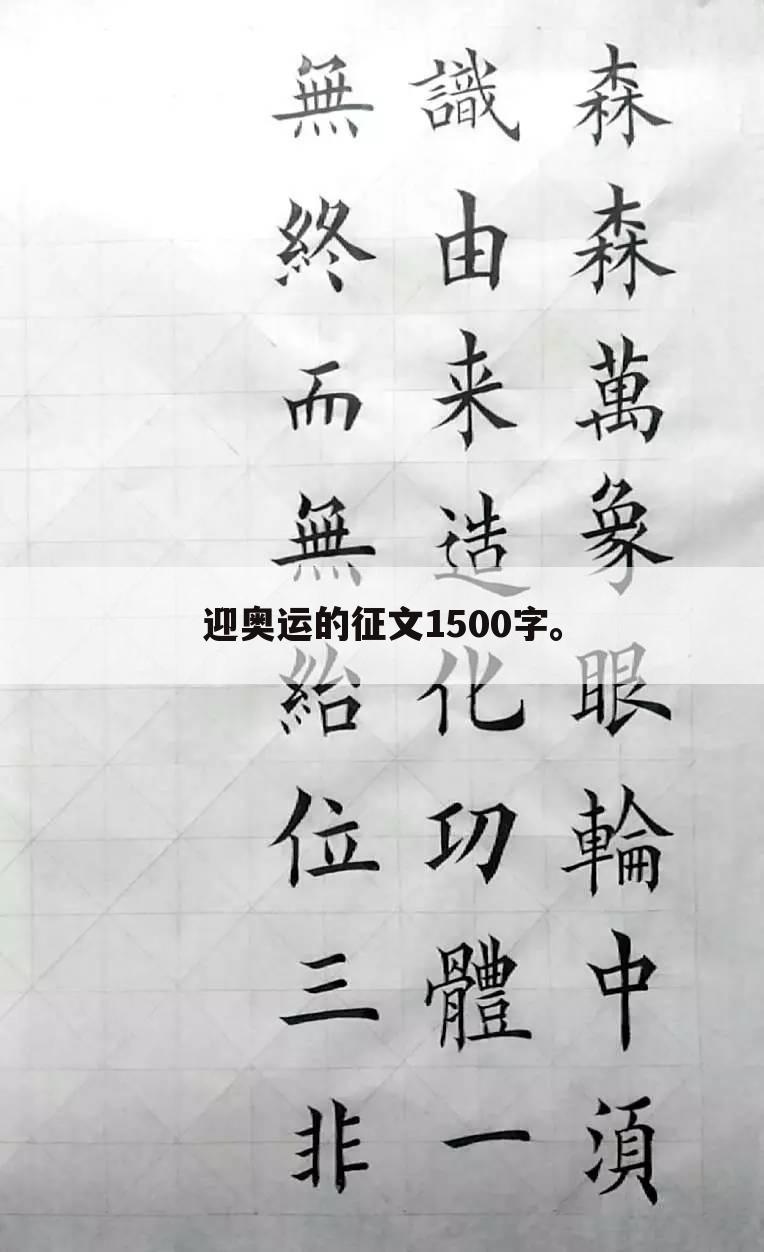 森森萬象眼輪中須
識由来造化功體一
無終而無紿位三非
迎奥运的征文1500字。